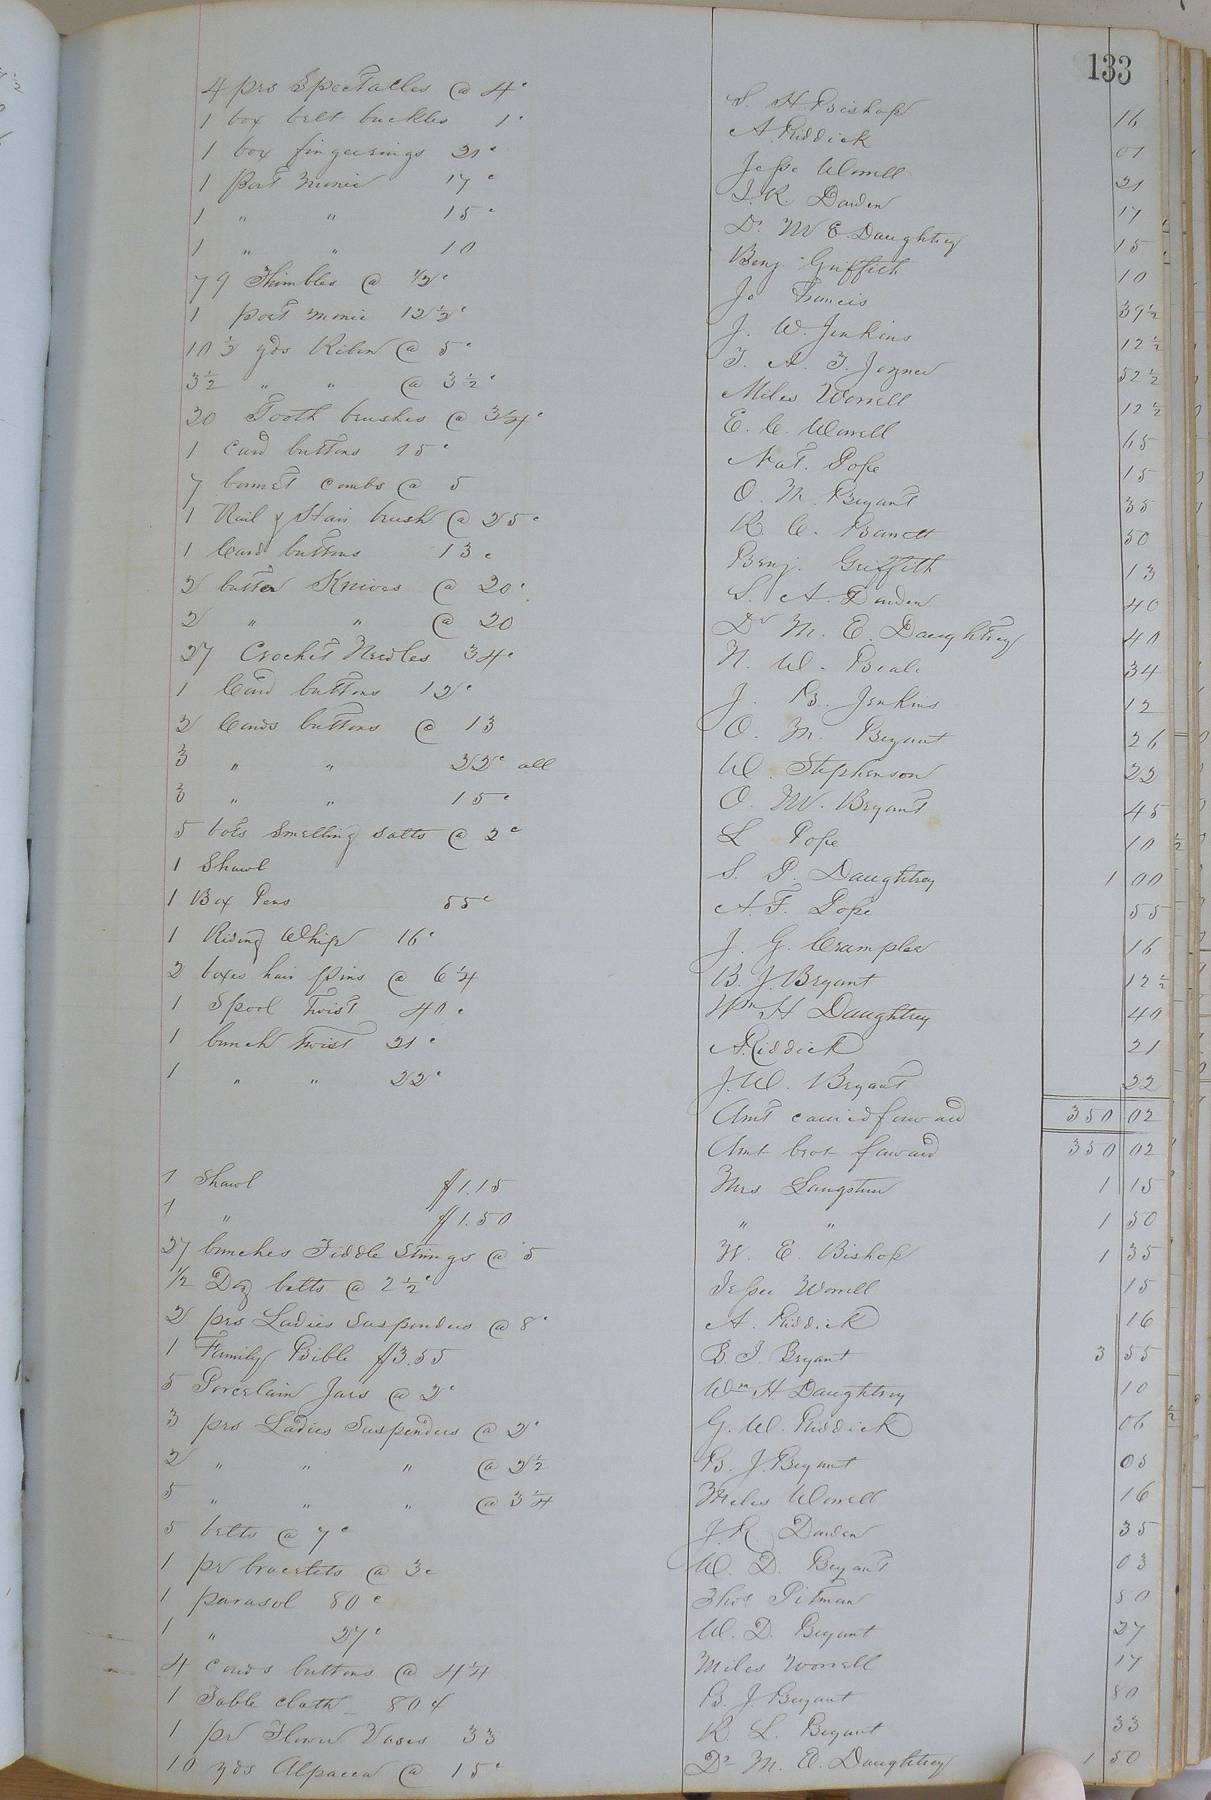 133
4 prs Spectacles @ 4c S. H. Bishop 16
1 box belt buckles 1c A. Riddick 01
1 box fingerrings 21c Jesse Worrell 21
1 Port monie 17c J. R. Darden 17
1 " " 15c Dr. M. E. Daughtrey 15
1 " " 10 Benj. Griffith 10
79 Thimbles @ 1/2c Jo Francis 39 1/2
1 port monie 12 1/2c J. W. Jenkins 12 1/2
10 1/2 yds Ribon @ 5c T. A. J. Joyner 52 1/2
3 1/2 " " @ 3 1/2c Miles Worrell 12 1/2
20 Tooth brushes @ 3 1/4c E. C. Worrell 65
1 card buttons 15c Nat. Pope 15
7 bonnet combs @ 5 O. M. Bryant 35
1 Nail & Stair brush @ 25c R. C. Barrett 50
1 Card buttons 13c Benj. Griffith 13
2 butter Knives @ 20c S. A. Darden 40
2 " " @ 20 Dr M. E. Daughtrey 40
27 Crochet Needles 34c N. W. Beale 34
1 Card buttons 12c J. B. Jenkins 12
2 Cards buttons @ 13 O. M. Bryant 26
3 " " 22c all W. Stephenson 22
3 " " 15c O. M. Bryant 45
5 bots Smelling salts @ 2c L Pope 10
1 Shawl S. P. Daughtrey 1 00
1 Box Pens 55c A. F. Pope 55
1 Riding Whip 16c J. G. Crumpler 16
2 boxes hair pins @ 6 1/4 B. J. Bryant 12 1/2
1 Spool Twist 40c Wm H Daughtrey 40
1 bunch Twist 21c A. Riddick 21
1 " " 22c J. W. Bryant 22
Amt carried forward 350 02
Amt brot forward 350 02
1 Shawl $1.15 Mrs Langston 1 15
1 " $1.50 " " 1 50
27 bunches Fiddle Strings @ 5 W. E. Bishop 1 35
1/2 Doz belts @ 2 1/2c Jesse Worrell 15
2 prs Ladies Suspenders @ 8c A. Riddick 16
1 Family Bible $3.55 B. J. Bryant 3 55
5 Porcelain Jars @ 2c Wm H Daughtrey 10
3 prs Ladies Suspenders @ 2c G. W. Riddick 06
2 " " " @ 2 1/2 B. J. Bryant 05
5 " " " @ 3 1/4 Miles Worrell 16
5 belts @ 7c J. R. Darden 35
1 pr bracelets @ 3c W. D. Bryant 03
1 parasol 80c Thos Pitman 80
1 " 27c W. D. Bryant 27
4 cards buttons @ 4 1/4 Miles Worrell 17
1 Table cloth 80c B. J. Bryant 80
1 pr Flower Vases 33 R. L. Bryant 33
10 yds Alpacca @ 15c Dr M. E. Daughtrey 1 50